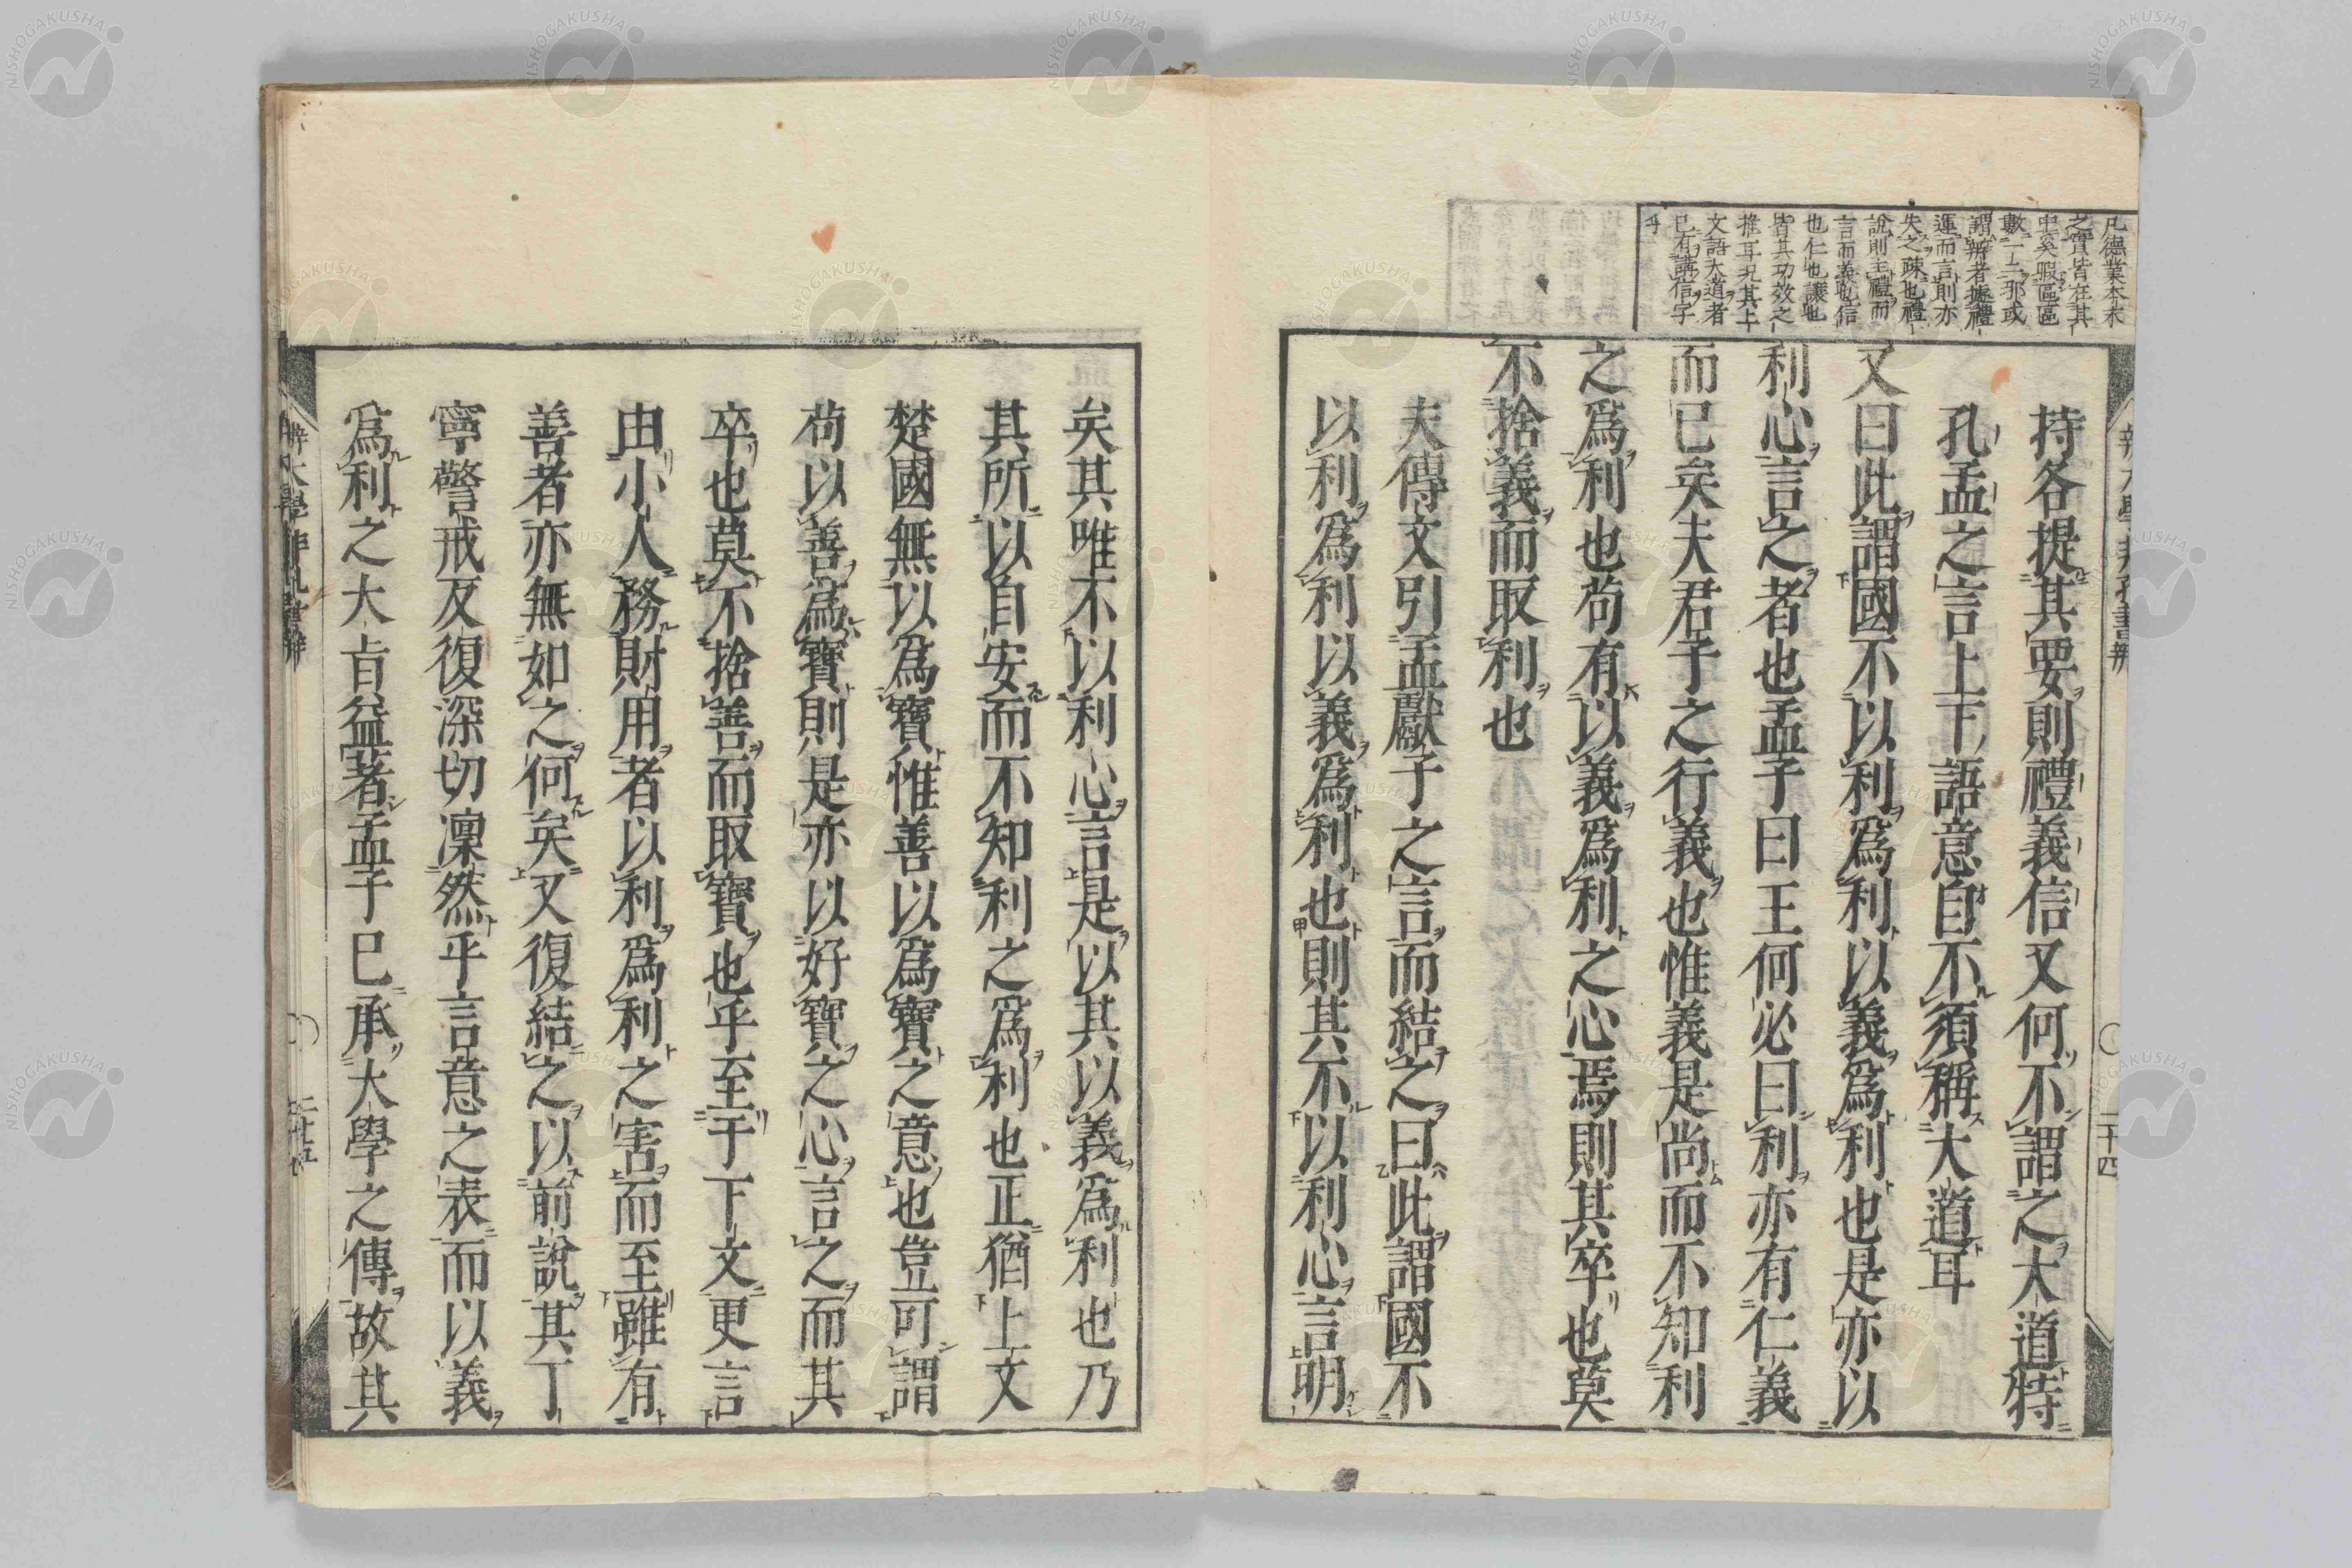 凡德業本末
之實皆在其
中矣暇區區
數一二那或
謂辨者據禮
運而言則亦
失之疎也禮
說則主禮而
言而義也信
也仁也讓也
皆其功效之
推耳況其上
文語大道者
已有講信字
乎
持各提其要則禮義信又何不謂之大道特
孔孟之言上下語意自不須稱大道耳
又曰此謂國不以利爲利以義爲利也是亦以
利心言之者也孟子曰王何必曰利亦有仁義
而已矣夫君子之行義也惟義是尚而不知利
之爲利也苟有以義爲利之心焉則其卒也莫
不捨義而取利也
夫傳文引孟獻子之言而結之曰此謂國不
以利爲利以義爲利也則其不以利心言明
二十四
矣其唯不以利心言是以其以義爲利也乃
其所以自安而不知利之爲利也正猶上文
楚國無以爲寶惟善以爲寶之意也豈可謂
苟以善爲寶則是亦以好寶之心言之而其
卒也莫不捨善而取寶也乎至于下文更言
由小人務財用者以利爲利之害而至雖有
善者亦無如之何矣又復結之以前說其丁
寧警戒反復深切凜然乎言意之表而以義
爲利之大旨益著孟子已承大學之傳故其
辨大學非孔書辨
二十五